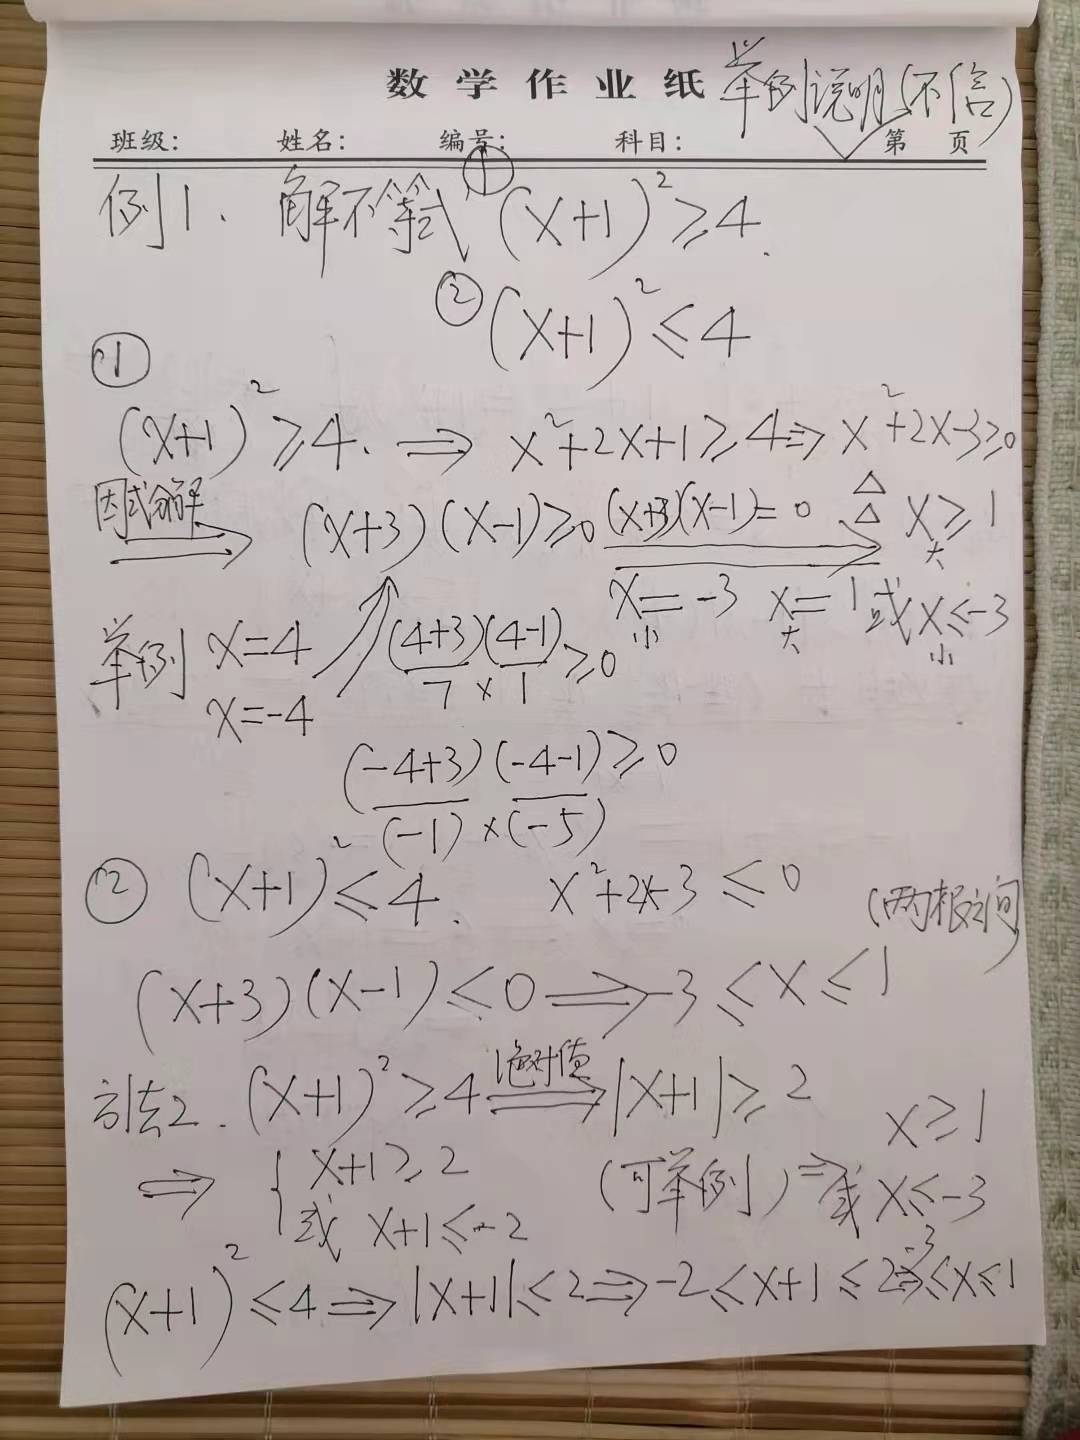 数学作业纸 举例说明(不信)
班级: 姓名: 编号: 科目: 第 页
例1. 解不等式 ① (x+1)²≥4.
② (x+1)²≤4
①
(x+1)²≥4. ⇒ x²+2x+1≥4 ⇒ x²+2x-3≥0
因式分解 ⇒ (x+3)(x-1)≥0 (x+3)(x-1)=0 △ △ x≥1 大
x=-3 小 x=1 大 或 x≤-3 小
举例 x=4 (4+3)(4-1)≥0
x=-4 7×1
(-4+3)(-4-1)≥0
(-1)×(-5)
② (x+1)²≤4. x²+2x-3≤0 (两根之间)
(x+3)(x-1)≤0 ⇒ -3≤x≤1
方法2. (x+1)²≥4 绝对值 ⇒ |x+1|≥2 x≥1
⇒ { x+1≥2 (可举例) ⇒ 或 x≤-3
或 x+1≤-2
(x+1)²≤4 ⇒ |x+1|≤2 ⇒ -2≤x+1≤2 ⇒ -3≤x≤1